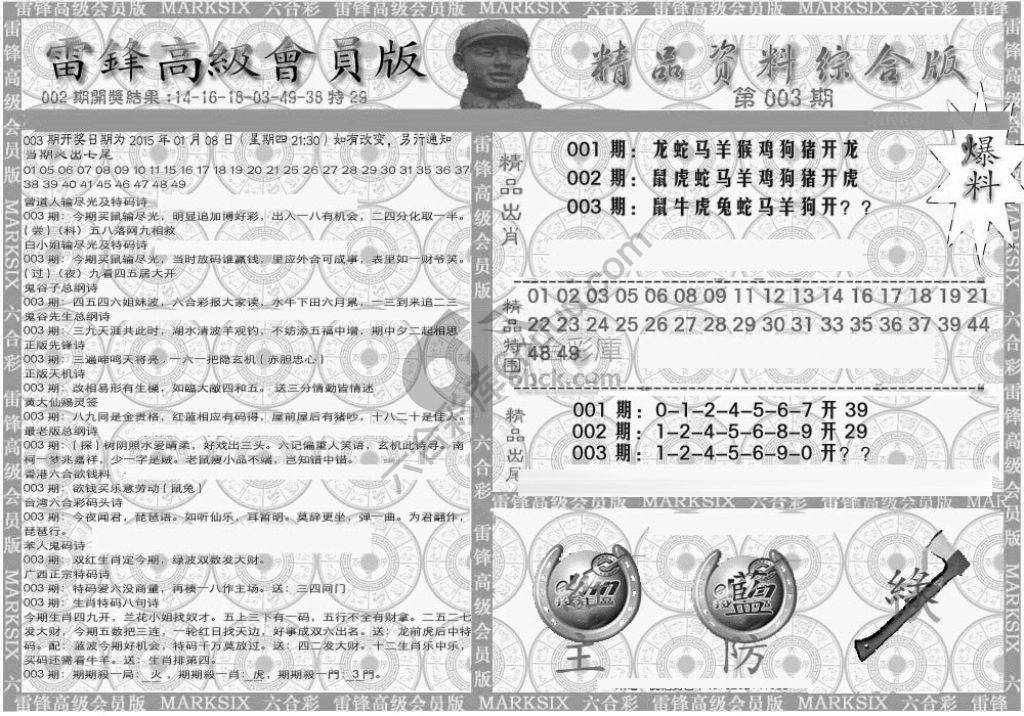 雷锋高级会员版 MARKSIX 六合彩 雷锋高级会员版 MARKSIX 六合彩 雷锋高级会员版 MARKSIX 六合彩 雷锋
雷鋒高級會員版
精品资料综合版
002期開獎結果:14-16-18-03-49-38特29
第003期
003期开奖日期为2015年01月08日(星期四21:30)如有改变,另行通知
当期必出七尾
01 05 06 07 08 09 10 11 15 16 17 18 19 20 21 25 26 27 28 29 30 31 35 36 37
38 39 40 41 45 46 47 48 49
曾道人输尽光及特码诗
003期:今期买鼠输尽光,明显追加博好彩,出入一八有机会,二四分化取一半。
(尝)(料)五八落网九相救
白小姐输尽光及特码诗
003期:今期买鼠输尽光,当时放码谁赢钱,里应外合可成事,表里如一财爷笑。
(过)(夜)九看四五居大开
鬼谷子总纲诗
003期:四五四六姐妹波,六合彩报大家读,水牛下田六月累,一三到来追二三
鬼谷先生总纲诗
003期:三九天涯共此时,湖水清波羊观钓,不妨添五福中增,期中夕二起相思
正版先锋诗
003期:三遍啼鸣天将亮,一六一把隐玄机(赤胆忠心)
正版天机诗
003期:改相易形有生機,如臨大敵四和五。送三分情勤皆情迷
黄大仙赐灵签
003期:八九同是金贵格,红蓝相应有码得,屋前屋后有猪吵,十八二十是佳人。
最老版总纲诗
003期:(探)树阴照水爱晴柔,好戏出三头。六记偏重人笑语,玄机此诗寻。南
柯一梦兆嘉祥,少一字是贼。老鼠瘦小品不端,岂知错中错。
香港六合欲钱料
003期:欲钱买乐意劳动(鼠兔)
台湾六合彩码头诗
003期:今夜闻君,琵琶语。如听仙乐,耳暂明。莫辞更坐,弹一曲。为君翻作,
琵琶行。
苯人鬼码诗
003期:双红生肖定今期,绿波双数发大财。
广西正宗特码诗
003期:特码爱六没商量,再楼一八作主场。送:三四同门
003期:生肖特码八句诗
今期生肖四九开,兰花小姐找奴才。五上三下有一码,五行不全有财拿。二五二七
发大财,今期五数把三连,一轮红日找天边,好事成双六出名。送:龙前虎后中特
码。配:蓝波今期好机会,特码千万莫放过。送:四二发大财。十二生肖乐中乐,
买码还需看牛羊。送:生肖排第四。
003期:期期殺一局:火,期期殺一肖:虎,期期殺一門:3門。
精品出肖
001期:龙蛇马羊猴鸡狗猪开龙
002期:鼠虎蛇马羊鸡狗猪开虎
003期:鼠牛虎兔蛇马羊狗开??
爆料
精品特围
01 02 03 05 06 08 09 11 12 13 14 16 18 19 21
22 23 24 25 26 27 28 30 31 33 35 36 37 39 44
48 49
精品出尾
001期:0-1-2-4-5-6-7开39
002期:1-2-4-5-6-8-9开29
003期:1-2-4-5-6-9-0开??
雷锋高级会员版 MARKSIX 六合彩 雷锋高级会员版 MARKSIX
藍
綠
主
防
雷锋高级会员版 MARKSIX 六合彩 雷锋高级会员版 MARKSIX 六合彩 雷锋高级会员版 MARKSIX 六合彩 雷锋